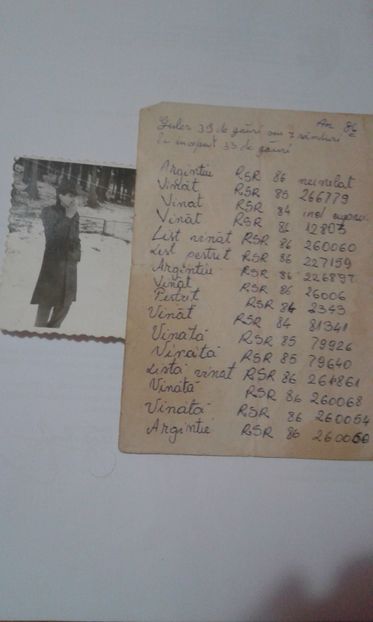 An. 86
Guler 39 de găuri sau 7 rânduri
la început 33 de găuri
Argintiu RSR 86 neinelat
Vînăt RSR 85 266779
Vînăt RSR 84 inel
Vînăt RSR 86 12803
List vînăt RSR 86 260060
List pestriț RSR 86 227159
Argintiu RSR 86 226897
Vînăt RSR 86 26006
Pestriț RSR 86 2343
Vînăt RSR 84 81341
Vînătă RSR 85 79926
Vînătă RSR 85 79640
Listă vînăt RSR 86 261861
Vînătă RSR 86 260068
Vînătă RSR 86 260054
Argintie RSR 86 260056